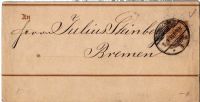 An
Herrn Julius Steinberg
Bremen